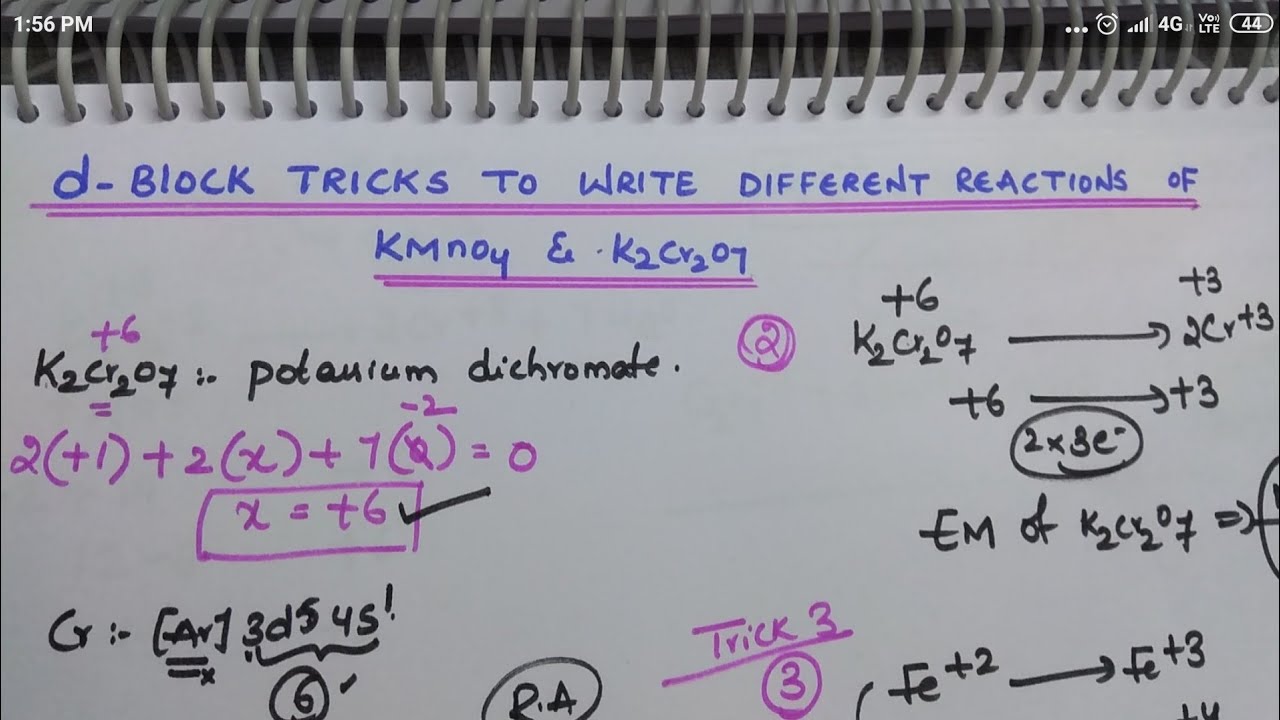 1:56 PM
4G Vo)) LTE 44
d-BLOCK TRICKS TO WRITE DIFFERENT REACTIONS OF
KMnO4 & K2Cr2O7
+6
K2Cr2O7 :- potassium dichromate.
=
-2
2(+1) + 2(x) + 7( ) = 0
x = +6 ✓
Cr :- [Ar] 3d5 4s1
x
6 ✓
R.A
2
+6 +3
K2Cr2O7 ⟶ 2Cr+3
+6 ⟶ +3
2×3e-
EM of K2Cr2O7 ⇒
Trick 3
3
Fe+2 ⟶ Fe+3
+4